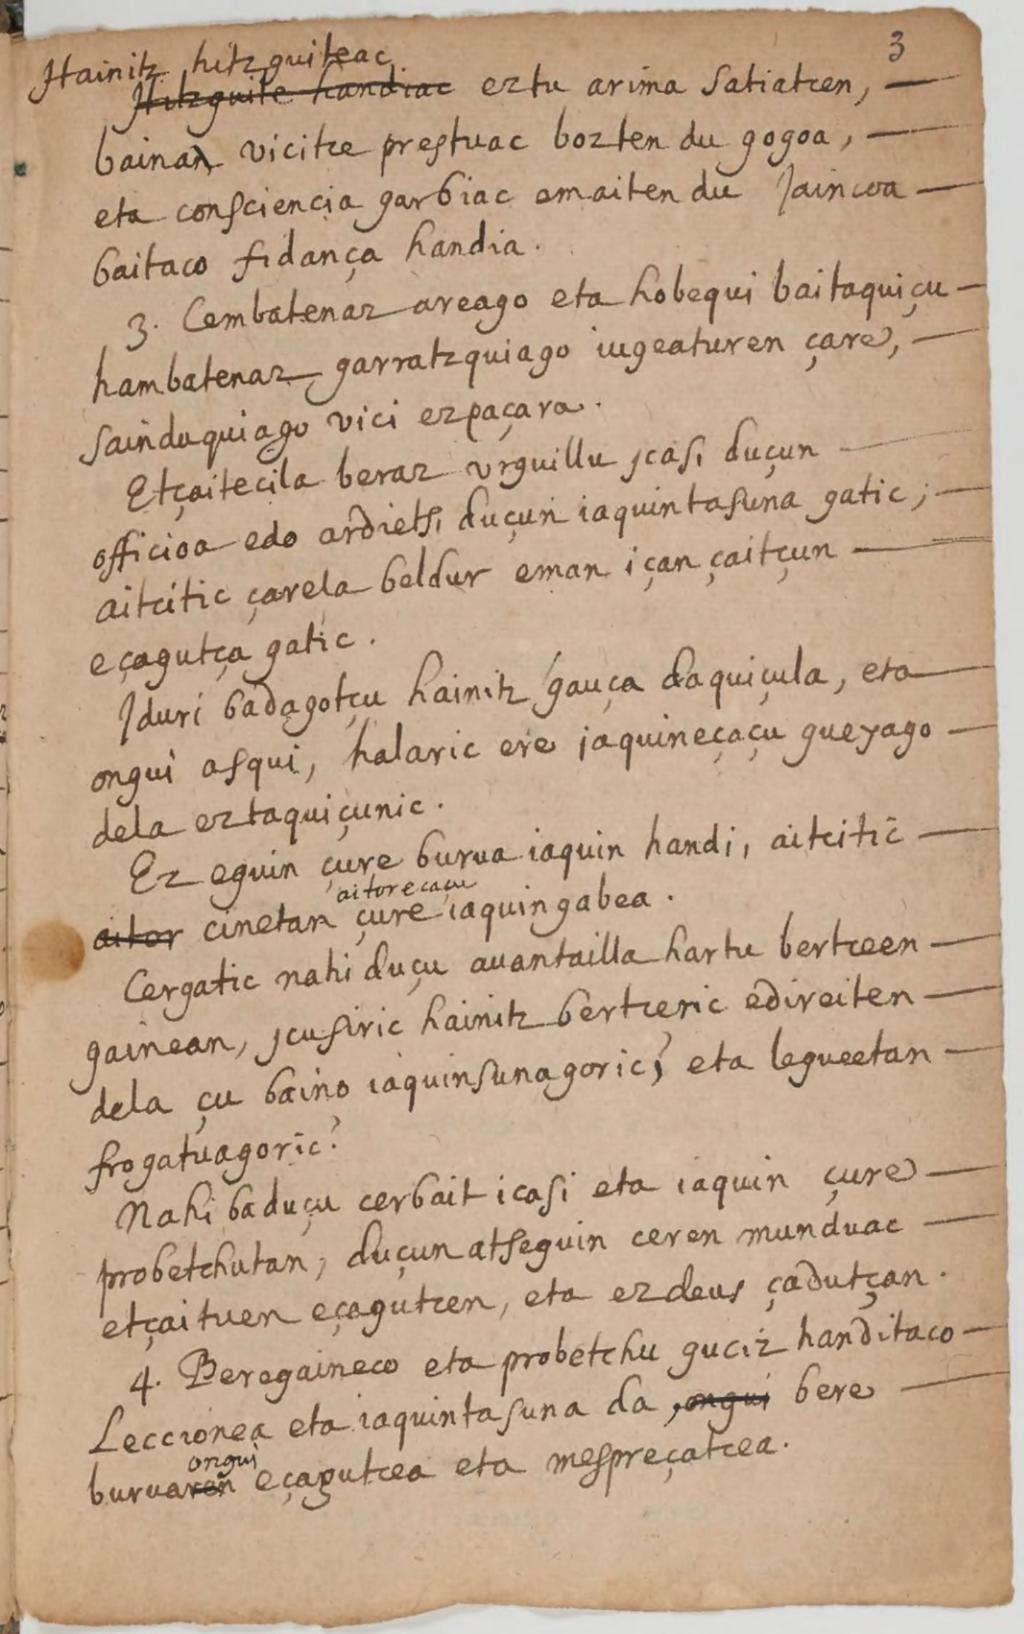 3
Hainitz hitzguiteac
Hitzguite handiac eztu arima satiatcen, —
bainan vicitce prestuac bozten du gogoa, —
eta consciencia garbiac emaiten du Jaincoa —
baitaco fidança handia.
3. Cembatenaz areago eta hobequi baitaquiçu —
hambatenaz garratzquiago iugeaturen çare, —
sainduquiago vici ezpaçara.
Etçaitecila beraz vrguillu jcasi duçun —
officioa edo ardietsi duçun iaquintasuna gatic; —
aitcitic çarela beldur eman içan çaitçun —
eçagutça gatic.
Iduri badagotçu hainitz gauça daquiçula, eta —
ongui asqui, halaric ere jaquineçaçu gueyago —
dela eztaquiçunic.
Ez eguin çure burua iaquin handi, aitcitic —
aitoreçaçu
aitor cinetan çure iaquingabea.
Cergatic nahi duçu auantailla hartu bertceen —
gainean, jcusiric hainitz bertceric edireiten —
dela çu baino iaquinsunagoric? eta legueetan —
frogatuagoric?
Nahi baduçu cerbait icasi eta iaquin çure —
probetchutan, duçun atseguin ceren munduac —
etçaituen eçagutcen, eta ez deus çadutçan.
4. Beregaineco eta probetchu guciz handitaco —
Leccionea eta iaquintasuna da, ongui bere —
ongui
buruaren eçagutcea eta mespreçatcea.